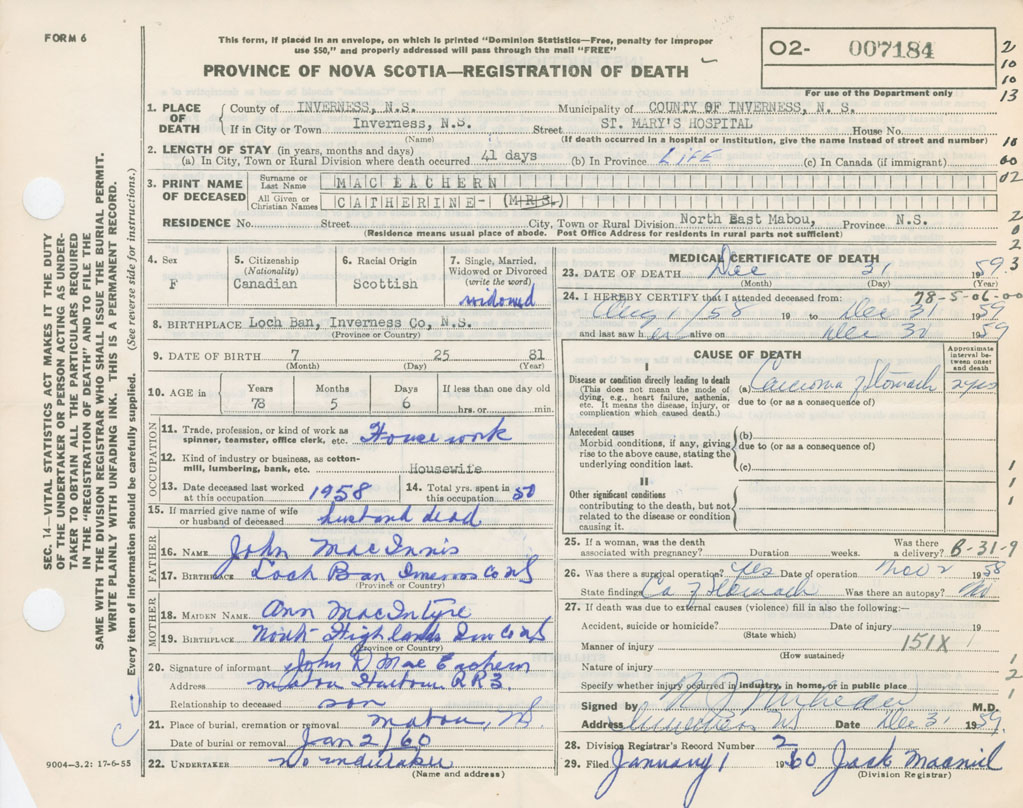 FORM 6
This form, if placed in an envelope, on which is printed "Dominion Statistics—Free, penalty for improper
use $50," and properly addressed will pass through the mail "FREE"
PROVINCE OF NOVA SCOTIA—REGISTRATION OF DEATH
02- 007184
For use of the Department only
2
10
10
13
1. PLACE OF DEATH
County of INVERNESS, N.S. Municipality of COUNTY OF INVERNESS, N. S.
If in City or Town Inverness, N.S. Street ST. MARY'S HOSPITAL House No.
(Name) (If death occurred in a hospital or institution, give the name instead of street and number)
2. LENGTH OF STAY (in years, months and days)
(a) In City, Town or Rural Division where death occurred 41 days (b) In Province LIFE (c) In Canada (if immigrant)
3. PRINT NAME OF DECEASED
Surname or Last Name MAC EACHERN
All Given or Christian Names CATHERINE- (MRS.)
RESIDENCE No. Street City, Town or Rural Division North East Mabou, Province N.S.
(Residence means usual place of abode. Post Office Address for residents in rural parts not sufficient)
4. Sex
F
5. Citizenship
(Nationality)
Canadian
6. Racial Origin
Scottish
7. Single, Married,
Widowed or Divorced
(write the word)
widowed
8. BIRTHPLACE Loch Ban, Inverness Co, N.S.
(Province or Country)
9. DATE OF BIRTH 7 25 81
(Month) (Day) (Year)
10. AGE in
Years Months Days If less than one day old
78 5 6 hrs. or min.
OCCUPATION
11. Trade, profession, or kind of work as
spinner, teamster, office clerk, etc. House work
12. Kind of industry or business, as cotton-
mill, lumbering, bank, etc. Housewife
13. Date deceased last worked
at this occupation 1958
14. Total yrs. spent in
this occupation 50
15. If married give name of wife
or husband of deceased husband dead
FATHER
16. NAME John MacInnis
17. BIRTHPLACE Loch Ban Inverness Co NS
(Province or Country)
MOTHER
18. MAIDEN NAME Ann MacIntyre
19. BIRTHPLACE North Highlands Inv Co NS
(Province or Country)
20. Signature of informant John D Mac Eachern
Address Mabou Harbour RR3.
Relationship to deceased son
21. Place of burial, cremation or removal Mabou, NS
Date of burial or removal Jan 2/60
22. UNDERTAKER No undertaker
(Name and address)
9004—3.2: 17-6-55
MEDICAL CERTIFICATE OF DEATH
23. DATE OF DEATH Dec 31 1959.
(Month) (Day) (Year)
24. I HEREBY CERTIFY that I attended deceased from: 78-5-06-00
Aug 1/58 19 to Dec 31 1959
and last saw her alive on Dec 30 1959
CAUSE OF DEATH
Approximate
interval be-
tween onset
and death
I
Disease or condition directly leading to death
(This does not mean the mode of
dying, e.g., heart failure, asthenia,
etc. It means the disease, injury, or
complication which caused death.)
(a) Carcinoma of Stomach 2 yrs
due to (or as a consequence of)
Antecedent causes
Morbid conditions, if any, giving
rise to the above cause, stating the
underlying condition last.
(b)
due to (or as a consequence of)
(c)
II
Other significant conditions
contributing to the death, but not
related to the disease or condition
causing it.
25. If a woman, was the death
associated with pregnancy? Duration weeks. Was there
a delivery? B-31-9
26. Was there a surgical operation? Yes Date of operation Nov 2 1958
State findings Ca of Stomach Was there an autopsy? No
27. If death was due to external causes (violence) fill in also the following:—
Accident, suicide or homicide? Date of injury 19
(State which)
Manner of injury 151X
(How sustained)
Nature of injury
Specify whether injury occurred in industry, in home, or in public place
Signed by M.D.
Address Inverness NS Date Dec 31 1959.
28. Division Registrar's Record Number 2
29. Filed January 1 1960 Jack Macneil
(Division Registrar)
SEC. 14—VITAL STATISTICS ACT MAKES IT THE DUTY
OF THE UNDERTAKER OR PERSON ACTING AS UNDER-
TAKER TO OBTAIN ALL THE PARTICULARS REQUIRED
IN THE "REGISTRATION OF DEATH" AND TO FILE THE
SAME WITH THE DIVISION REGISTRAR WHO SHALL ISSUE THE BURIAL PERMIT.
WRITE PLAINLY WITH UNFADING INK. THIS IS A PERMANENT RECORD.
Every item of information should be carefully supplied. (See reverse side for instructions.)